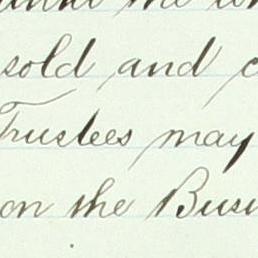 the
sold and
Trustees may
on the Busi